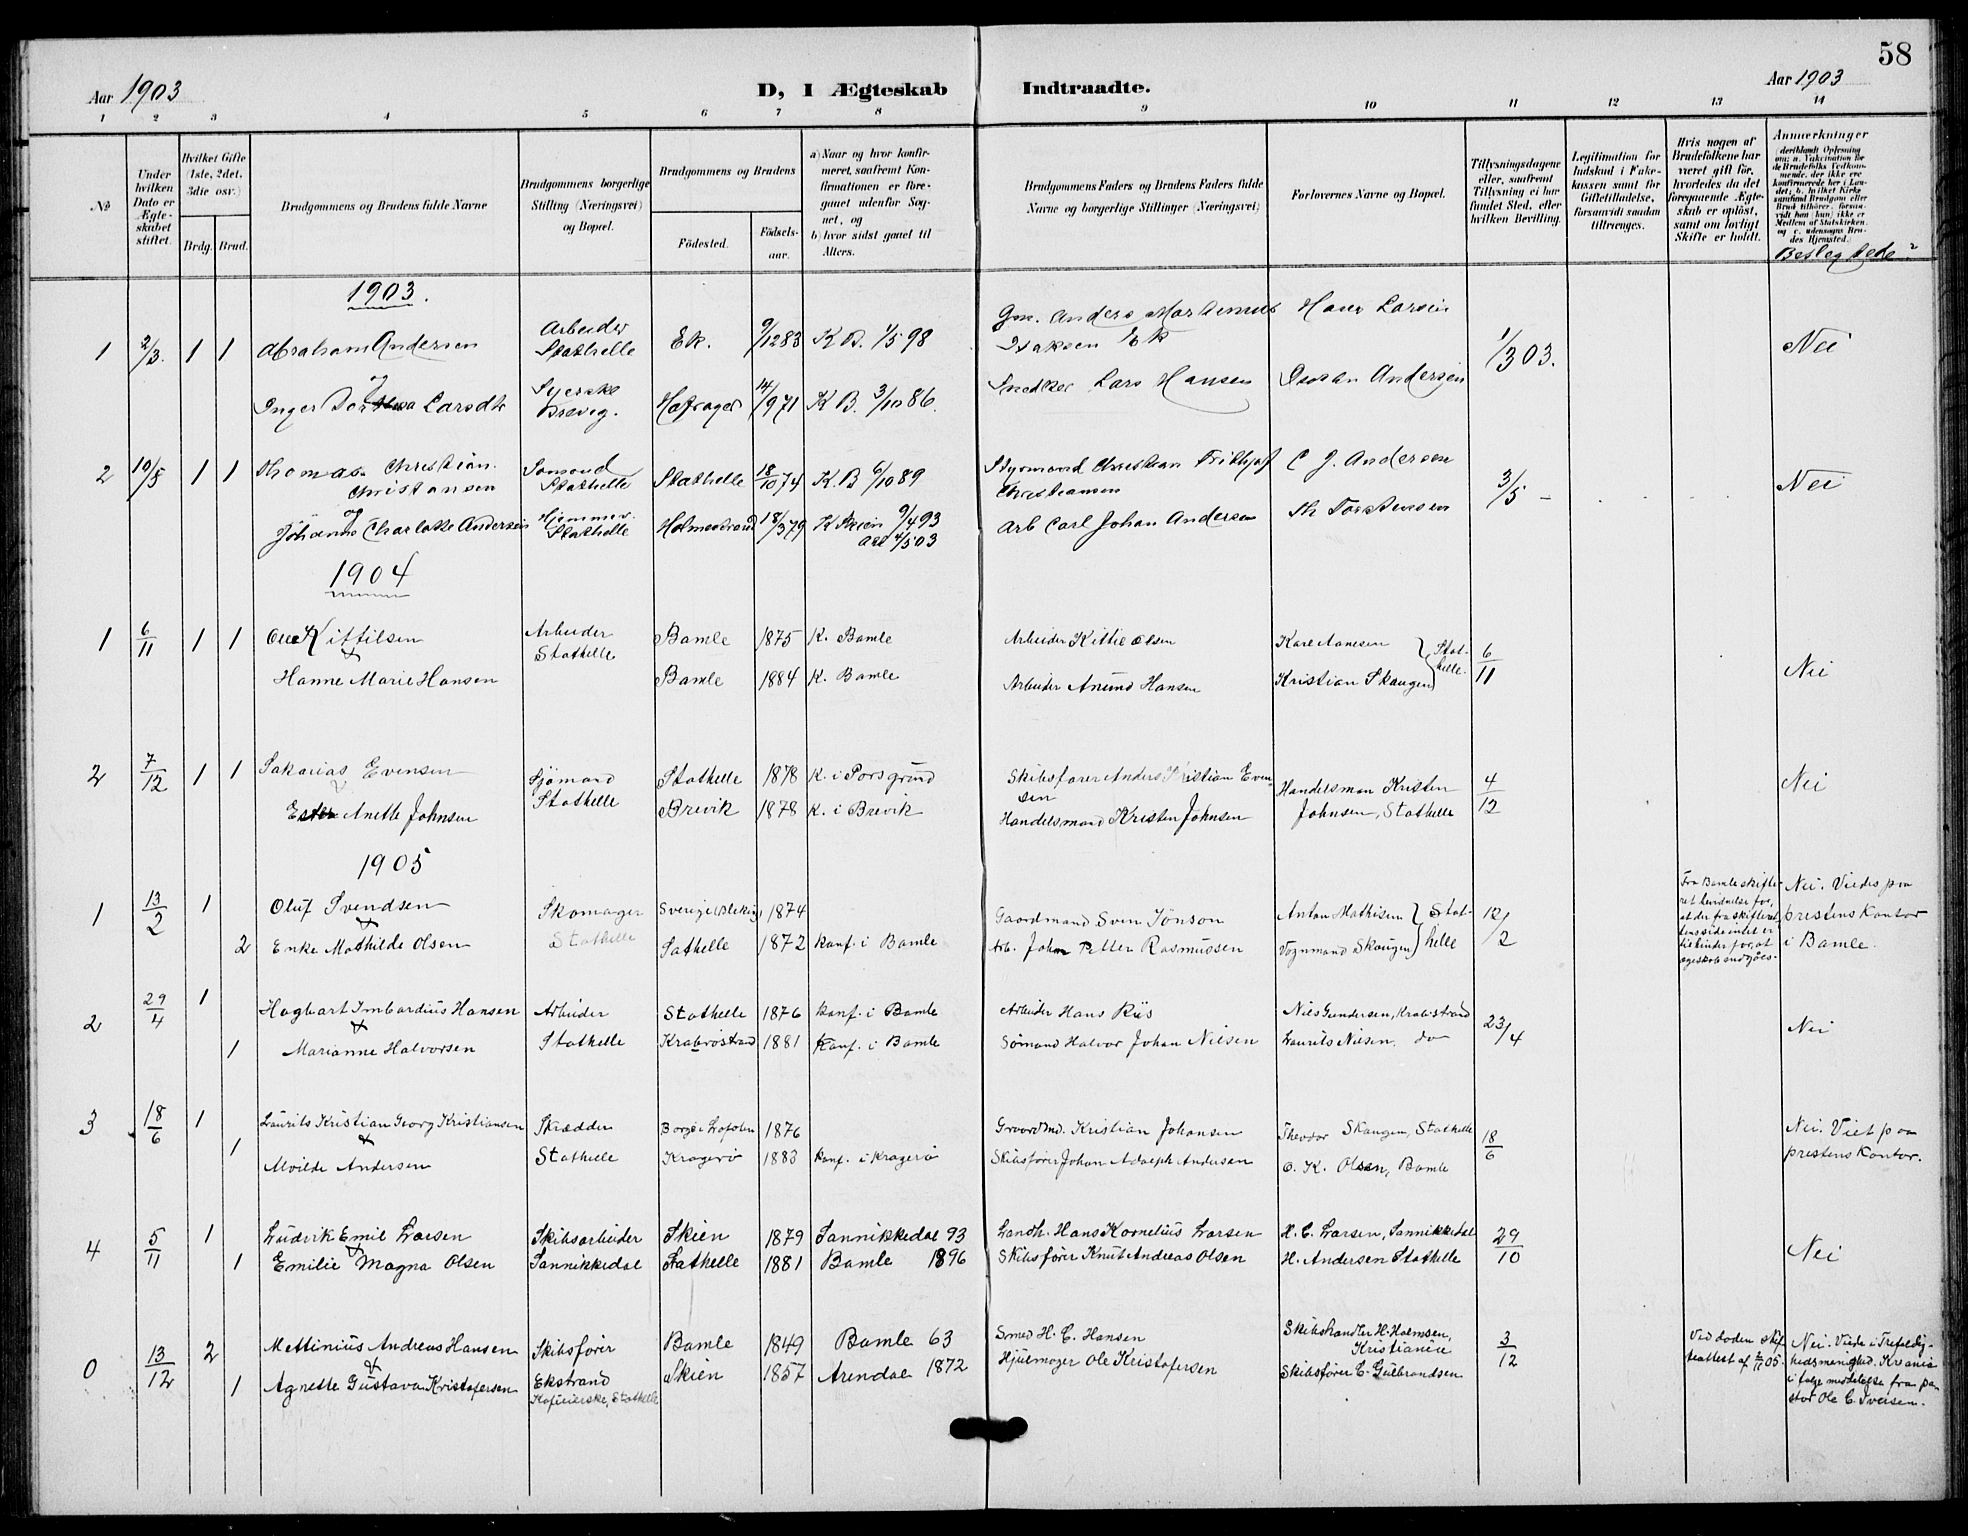 58
Aar 1903
D, I Ægteskab Indtraadte.
Aar 1903
1 2 3 4 5 6 7 8 9 10 11 12 13 14
No
Under hvilken Dato er Ægteskabet stiftet.
Hvilket Gifte (1ste, 2det, 3die osv.)
Brdg. Brud.
Brudgommens og Brudens fulde Navne
Brudgommens borgerlige Stilling (Næringsvei) og Bopæl.
Brudgommens og Brudens
Födested.
Födselsaar.
a) Naar og hvor konfirmeret, saafremt Konfirmationen er foregaaet udenfor Sognet, og
b) hvor sidst gaaet til Alters.
Brudgommens Faders og Brudens Faders fulde Navne og borgerlige Stillinger (Næringsvei)
Forlovernes Navne og Bopæl.
Tillysningsdagene eller, saafremt Tillysning ei har fundet Sted, efter hvilken Bevilling.
Legitimation for Indskud i Enkekassen samt for Giftetilladelse, forsaavidt saadan tiltrænges.
Hvis nogen af Brudefolkene har været gift før, hvorledes da det foregaaende Ægteskab er opløst, samt om lovligt Skifte er holdt.
Anmærkninger
deriblandt Oplysning om: a. Vakcination for de Brudefolks Vedkommende, der ikke ere konfirmerede her i Landet; b. hvilket Kirkesamfund Brudgom eller Brud tilhører, forsaavidt han (hun) ikke er Medlem af Statskirken, og c. udensogns Brudes Hjemsted.
Beslægtede?
1903.
1 2/3. 1 1 Abraham Andersen Arbeider Stathelle Ek. 9/12 83 K B. 1/5 98 Gm. Anders Martinius Isaksen Ek Hans Larsen 1/3 03. Nei
og
Inger Larsdtr Syerske Brevig. 14/9 71 K B. 3/10 86. Snedker Lars Hansen Andersen
2 10/5 1 1 Thomas Christian Christansen Sömand Stathelle Stathelle 18/10 74 K B 6/10 89 Styrmand Christian Frithjof Christiansen C J. Andersen 3/5 - Nei
og
Johanne Charlotte Andersen Hjemmev. Stathelle Holmestrand 18/3 79 K Skien 9/4 93 Arb Carl Johan Andersen Th Torstensen
4/5 03
1904
1 6/11 1 1 Ole Kittilsen Arbeider Stathelle Bamle 1875 K. Bamle Arbeider Kittil Olsen Karl Aanesen } Stathelle. 6/11 Nei
&
Hanne Marie Hansen Bamle 1884 K. Bamle Arbeider Anund Hansen Kristian Skaugen
2 7/12 1 1 Sakarias Evensen Sjömand Stathelle Stathelle 1878 K. i Porsgrund Skibsförer Anders Kristian Evensen Handelsman Kristen Johnsen, Stathelle 4/12 Nei
&
Ester Anette Johnsen Brevik 1878 K. i Brevik Handelsmand Kristen Johnsen
1905
1 13/2 1 Oluf Svendsen Skomager Stathelle Sverige (Bleking) 1874 Gaardmand Sven Jönson Anton Mathisen } Stathelle 12/2 Fra Bamle skifteret bevidnelse for, at der fra skifterettens side intet er til hinder for, at egteskab indgåes. Nei. Viedes paa prestens Kontor i Bamle.
&
2 Enke Mathilde Olsen Sathelle 1872 konf. i Bamle Arb. Johan Petter Rasmussen Vognmand Skaugen
2 29/4 1 Hagbart Imbardius Hansen Arbeider Stathelle Stathelle 1876 konf. i Bamle Arbeider Hans Riis Nils Gundersen, Krabstrand 23/4 Nei
&
1 Marianne Halvorsen Kraberöstrand 1881 Konf. i Bamle Sömand Halvor Johan Nilsen Laurits Nilsen. do
3 18/6 1 Laurits Kristian Georg Kristiansen Skrædder Stathelle Borge Lofoten 1876 Gaardmd. Kristian Johansen Theodor Skaugen, Stathelle 18/6 Nei. Viet paa prestens Kontor.
&
1 Alvilde Andersen Kragerö 1883 konf. i Kragerö Skibsförer Johan Adolph Andersen O. K. Olsen, Bamle
4 5/11 1 Ludvik Emil Larsen Skibsarbeider Skien 1879 Sannikkedal 93 Landh. Hans Kornelius Larsen H. C. Larsen, Sannikkedal 29/10 Nei
&
1 Emilie Magna Olsen Sannikkedal Stathelle 1881 Bamle 1896 Skibsförer Knut Andreas Olsen H. Andersen Stathelle
0 13/12 2 Mettinius Andreas Hansen Skibsförer Bamle 1849 Bamle 63 Smed H. C. Hansen Skibshandler H. Holmsen, Kristiania 3/12 Ved döden skifteattest af 2/11 05. Nei. Viede i Trefoldighedsmenighed. Kr.ania i følge meddelelse fra pastor Ole C. Iversen.
&
1 Agnette Gustava Kristofersen Ekstrand Stathelle Skien 1857 Arendal 1872 Hjulmager Ole Kristofersen Skibsförer C. Gulbrandsen